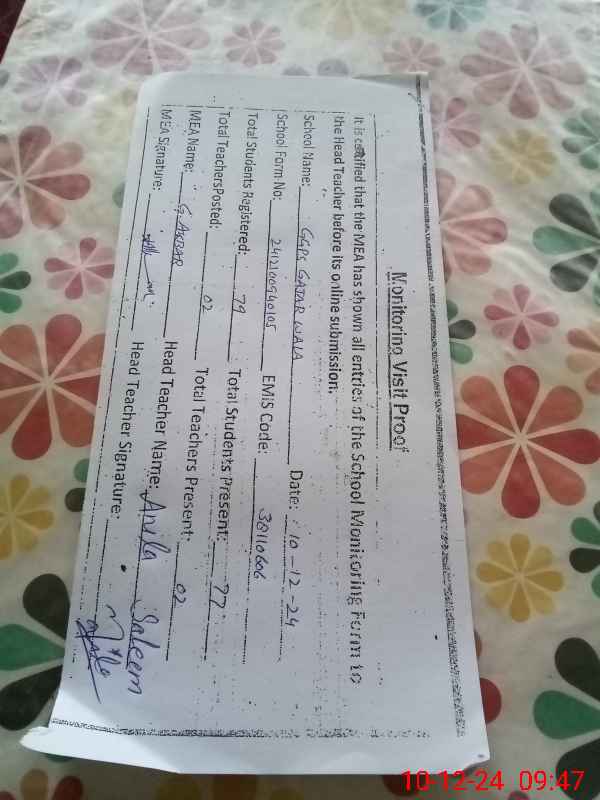 Monitoring Visit Proof
It is certified that the MEA has shown all entries of the School Monitoring Form to
the Head Teacher before its online submission.
School Name: GGPS GAJAR WALA Date: 10-12-24
School Form No: EMIS Code: 38110606
Total Students Registered: 79 Total Students Present: 77
Total Teachers Posted: 02 Total Teachers Present: 02
MEA Name: G. AKBAR Head Teacher Name: Anila Saleem
MEA Signature: Head Teacher Signature:
10-12-24 09:47